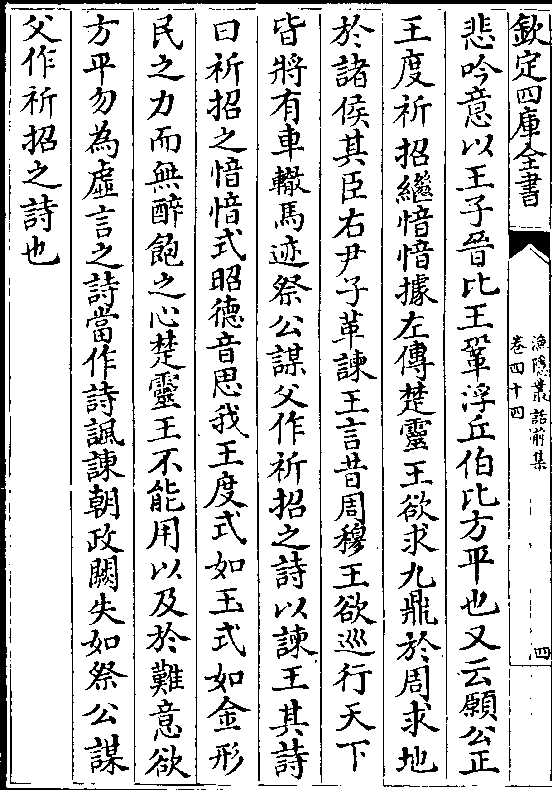 欽定四庫全書
漁隱叢話前集
卷四十四
四
悲吟意以王子晉比王鞏浮丘伯比方平也又云願公正
王度祈招繼愔愔據左傳楚靈王欲求九鼎於周求地
於諸侯其臣右尹子革諫王言昔周穆王欲巡行天下
皆將有車轍馬迹祭公謀父作祈招之詩以諫王其詩
曰祈招之愔愔式昭德音思我王度式如玉式如金形
民之力而無醉飽之心楚靈王不能用以及於難意欲
方平勿為虛言之詩當作詩諷諫朝政闕失如祭公謀
父作祈招之詩也